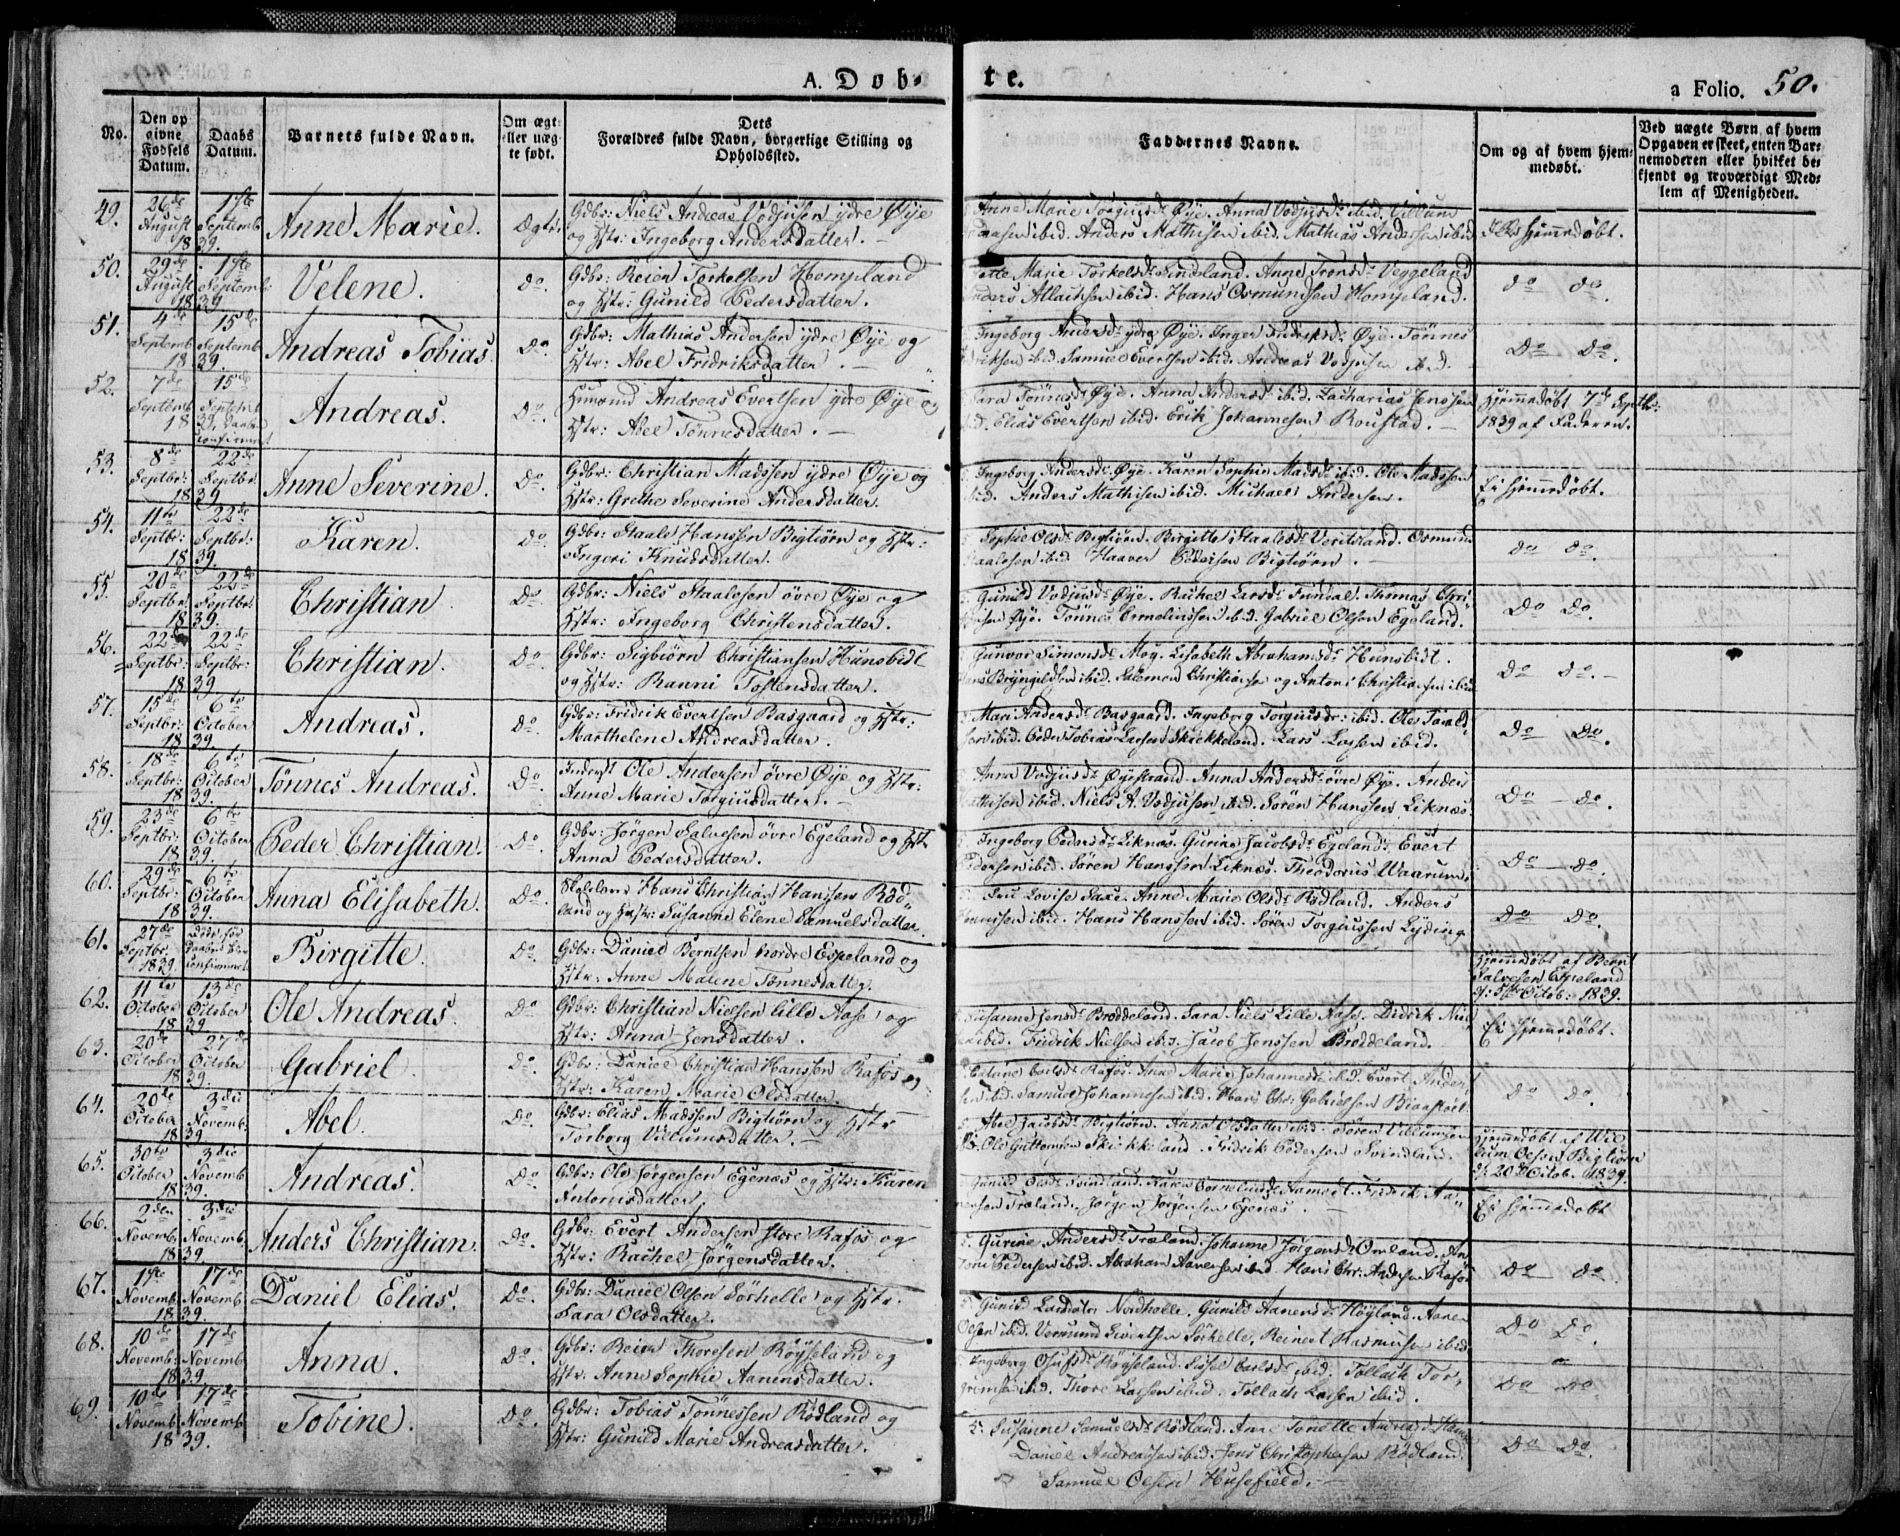 A. Døbte.
a Folio. 50.
No.
Den opgivne Fødsels Datum.
Daabs Datum.
Barnets fulde Navn.
Om ægte eller uægte født.
Dets Forældres fulde Navn, borgerlige Stilling og Opholdssted.
Faddernes Navne.
Om og af hvem hjemmedøbt.
Ved uægte Børn af hvem Opgaven er skeet, enten Barnemoderen eller hvilket bekjendt og troværdigt Medlem af Menigheden.
49. 26de August 1ste Septemb 1839. Anne Marie. Ægte. Gdbr: Niels Andreas Vodjusen ydre Øije
og Hstr: Ingeborg Andersdatter.
Anne Marie Torgiusdr Øye. Anna Vodjusdr ibid. Villum
ibid. Anders Mathisen ibid. Mathias Andersen ibid. Ei Hjemmedøbt.
50. 29de August 1ste Septemb 1839. Velene. Do. Gdbr: Reier Torkelsen Hompland
og Hstr: Gunild Pedersdatter.
Marie Torkelsdr Lindeland. Anne Tronsdr Veggeland
Atlachsen ibid. Hans Osmundsen Hompland. do do.
51. 4de Septemb 15de Septemb 1839. Andreas Tobias. Do. Gdbr: Mathias Andersen ydre Øije og
Hstr: Abel Fridriksdatter.
Ingeborg Andersdr ydre Øije. Inger Fridriksdr Øije. Tønnes
ibid. Samuel Evertsen ibid. Andreas Vodjusen ibid. Do Do.
52. 7de Septemb 15de Septemb 1839, Daaben confirmeret Andreas. Do. Huusmd Andreas Evertsen ydre Øije og
Hstr: Abel Tønnesdatter.
Sara Tønnesdr Øije. Anna Andersdr ibid. Zacharias Jenssen
Elias Evertsen ibid. Erik Johannesen Roustad. Hjemmedøbt 7de Septbr:
1839 af Faderen.
53. 8de Septbr: 22de Septbr: 1839 Anne Severine. Do. Gdbr: Christian Madssen ydre Øije og
Hstr: Grethe Severine Andersdatter.
Ingeborg Andersdr Øye. Karen Sophie Madsdr ibid. Ole Madssen
ibid. Anders Mathisen ibid. Michael Andersen. Ei Hjemmedøbt.
54. 11te Septbr: 22de Septbr: 1839. Karen. Do. Gdbr: Staale Hanssen Bigtiørn og Hstr:
Ingeri Knudsdatter.
Sophie Olsdr Bigtiørn. Birgitte Staalesdr. Osmund
Staalesen ibid. Haaver Pedersen Bigtiørn. do do.
55. 20de Septbr: 22de Septbr: 1839. Christian. Do. Gdbr: Niels Staalesen øvre Øye og
Hstr: Ingeborg Christensdatter.
Gunild Vodjusdr Øye. Rachel Larsdr. Thomas
Øye. Tønnes Ommelinssen ibid. Gabriel Olsen Egeland. Do Do.
56. 22de Septbr: 22de Septbr: 1839 Christian. Do Gdbr: Sigbiørn Christiansen Hunsbidt
og Hstr: Ranni Tostensdatter.
Gunvor Simonsdr Moy. Lisabeth Abrahamsdr Hunsbidt.
Bryngelssen ibid. Salemon Christiansen og Antoni Christiansen ibid Do Do.
57. 15de Septbr: 6te October 1839. Andreas. Do. Gdbr: Fridrik Evertsen Basgaard og Hstr:
Marthelene Andreasdatter.
Mari Andersdr Basgaard. Ingeborg Torgiusdr: ibid. Ole
ibid. Peder Tobias Larsen Skiekkeland. Lars Larsen ibid. Do Do.
58. 18de Septbr: 6te October 1839. Tønnes Andreas. Do. Inderst Ole Andersen øvre Øye og Hstr:
Anne Marie Torgiusdatter.
Anna Vodjusdr Øyestrand. Anna Andersdr øvre Øye. Anders
Mathisen ibid. Niels A. Vodjusen ibid. Søren Hanssen Liknæs. Do do.
59. 23de Septbr: 6te October 1839. Peder Christian. Do. Gdbr: Jørgen Salvesen øvre Egeland og Hstr
Anna Pedersdatter.
Ingeborg Pedersdr Liknæs. Gurine Jacobsdr Egeland. Evert
Pedersen ibid. Søren Hanssen Liknæs. Theodorius Waarum. Do do.
60. 29de Septbr: 6te October 1839. Anna Elisabeth. Do. Skolelærer Hans Christian Hanssen Rødland
og Hustr: Susanne Elene Samuelsdatter.
Fru Lovise Saxe. Anne Marie Olsdr Rødland. Anders
ibid. Hans Hanssen ibid. Søren Torgiussen Lyding. Do Do.
61. 27de Septbr: 1839. Død før Daaben blev confirmeret Birgitte. Do. Gdbr: Daniel Berntsen nordre Espeland og
Hstr: Anne Malene Tønnesdatter.
Hjemmedøbt af Bernt
Salvesen Espeland
d: 5te Octob: 1839.
62. 11te October 13de October 1839 Ole Andreas. Do. Gdbr: Christian Nielsen lille Aase og
Hstr: Anna Jensdatter.
Susanne Jensdr Brøddeland. Sara Niels Lille Aase. Didrik
ibid. Fridrik Nielsen ibid. Jacob Jenssen Brøddeland. Ei Hjemmedøbt.
63. 20de October 27de October 1839. Gabriel. Do. Gdbr: Daniel Christian Hanssen Rafos og
Hstr: Karen Marie Olsdatter.
Rafos. Marie Johannesdr ibid. Evert Andersen
ibid. Samuel Johannesen ibid. Hans Chr: Gabrielsen do do.
64. 20de October 3die Novemb: 1839 Abel. Do. Gdbr: Elias Madssen Bigtiørn og Hstr
Torborg Villumsdatter.
Abel Jacobsdr Bigtiørn. Anna Olsdatter ibid. Søren Villumsen
Ole Guttormsen Skiekkeland. Fridrik Pedersen Svindland. Hjemmedøbt af
Olsen Bigtiørn
d: 20de Octob: 1839.
65. 30te October 3die Novemb 1839. Andreas. Do. Gdbr: Ole Jørgensen Egenæs og Hstr: Karen
Antonisdatter.
Gunild Olsdr Svindland. Karen. Fridrik
Træland. Jørgen Jørgensen Egenæs. Ei Hjemmedøbt
66. 2den Novemb: 3die Novemb: 1839. Anders Christian. Do. Gdbr: Evert Andersen store Rafos og
Hstr: Rachel Jørgensdatter.
Gurine Andersdr Træland. Johanne Jørgensdr Omland.
Pedersen ibid. Abraham Aanensen ibid. Hans Chr: Andersen Rafos Do do.
67. 1ste Novemb: 17de Novemb: 1839. Daniel Elias. Do. Gdbr: Daniel Olsen Sørhelle og Hstr.
Sara Olsdatter.
Gunild Larsdatter Nordhelle. Gunild Aanensdr Høyland. Aanen
Olsen ibid. Vermund Sivertsen Sørhelle. Reinert Rasmussen ibid Do Do.
68. 10de Novemb: 17de Novemb: 1839. Anna. Do. Gdbr: Reier Thoresen Røyseland og
Hstr. Anne Sophie Aanensdatter.
Ingeborg Osufsdr Røyseland. Sissel ibid. Tollach
ibid. Thore Larsen ibid. Tollach Larsen ibid. Do Do.
69. 10de Novemb: 17de Novemb. 1839. Tobine. Do. Gdbr: Tobias Tønnessen Rødland og
Hstr: Gunild Marie Andreasdatter.
Susanne Samuelsdr Rødland. Ane Tonette Andreasdr
Daniel Andreassen ibid. Jens Christophersen Rødland. Do Do.
Samuel Olsen Husefield.